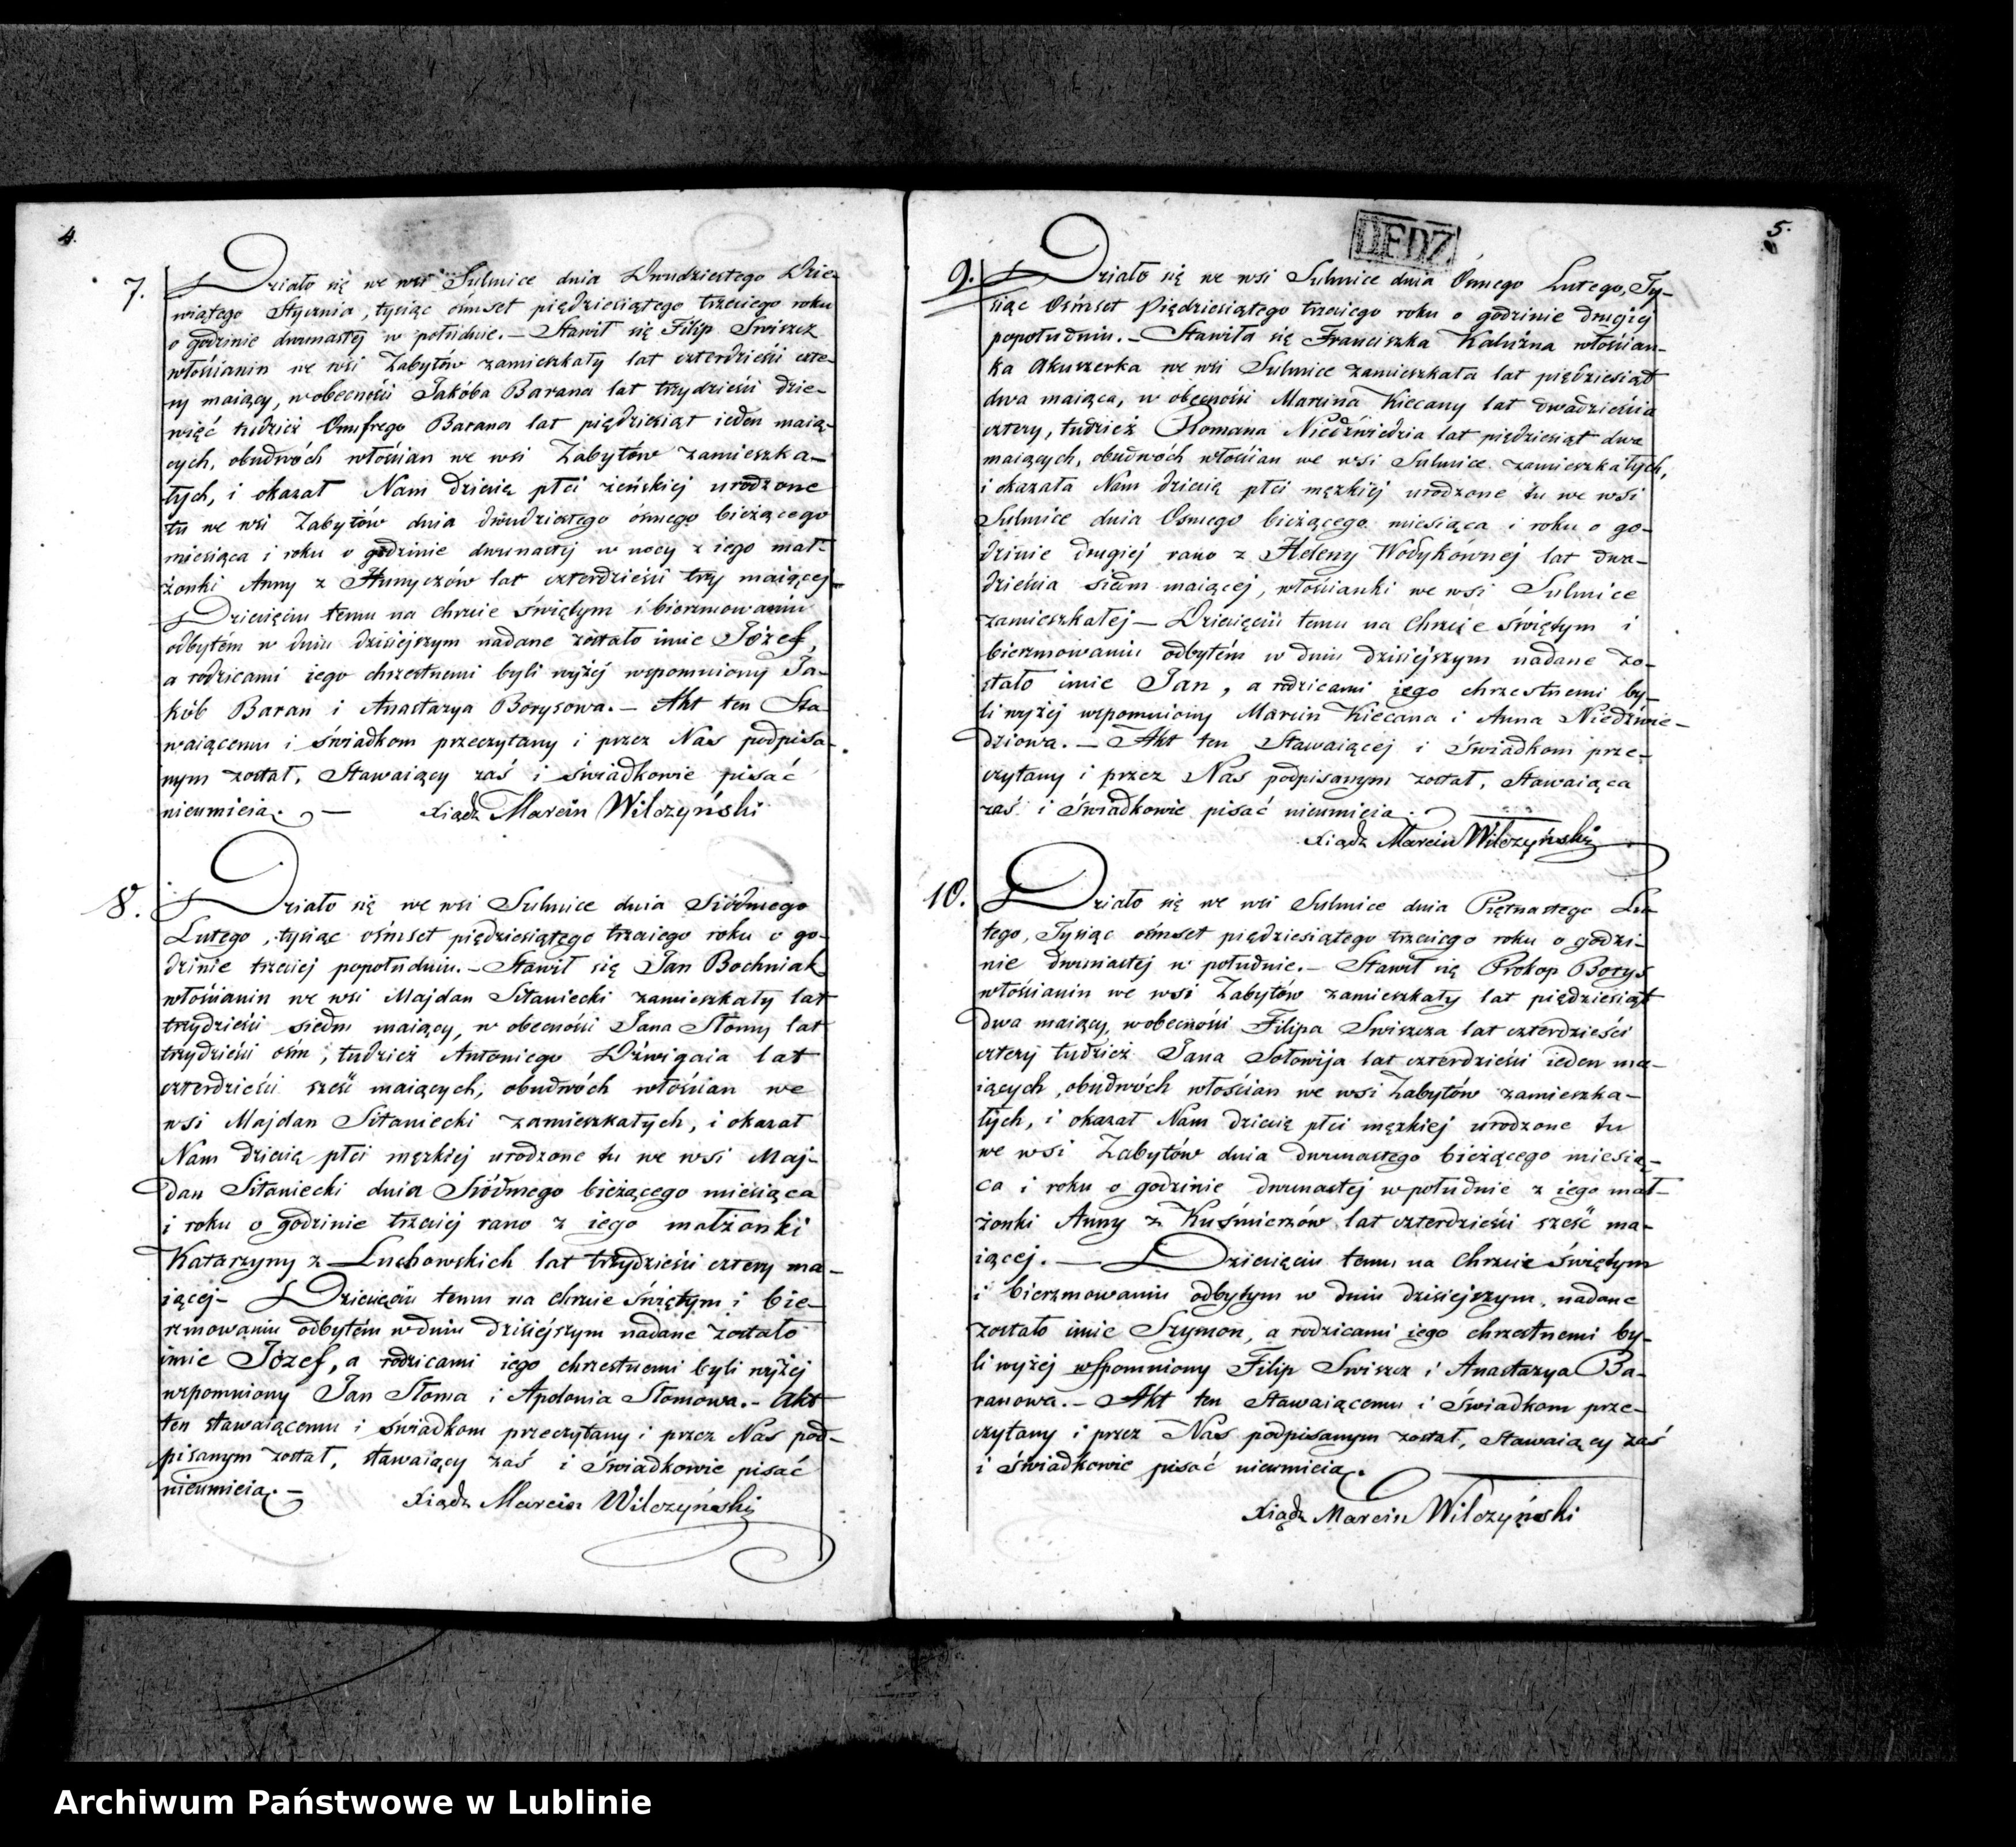 4.
7.
Działo się we wsi Sulmice dnia Dwudziestego Dzie-
wiątego Stycznia, tysiąc ośmset pięдziesiątego trzeciego roku
o godzinie dwunastej w południe. — Stawił się Filip Swiszcz
włościanin we wsi Zabytów zamieszkały lat czterdzieści czte-
ry maiący, w obecności Jakóba Barana lat trzydzieści dzie-
więć tudzież Onufrego Barana lat pięдziesiąt ieden maią-
cych, obudwóch włościan we wsi Zabytów zamieszka-
łych, i okazał Nam dziecię płci żeńskiej urodzone
tu we wsi Zabytów dnia dwudziestego ósmego bieżącego
miesiąca i roku o godzinie dwunastej w nocy z iego mał-
żonki Anny z Hunyczów lat czterdzieści trzy maiącej —
Dziecięciu temu na chrzcie świętym i bierzmowaniu
odbytém w dniu dzisiejszym nadane zostało imie Józef,
a rodzicami iego chrzestnemi byli wyżej wspomniony Ja-
kób Baran i Anastazya Borysowa. — Akt ten Sta-
waiącemu i świadkom przeczytany i przez Nas podpisa-
nym został, Stawaiący zaś i świadkowie pisać
nieumieią. —
Xiądz Marcin Wilczyński
8.
Działo się we wsi Sulmice dnia Siódmego
Lutego, tysiąc ośmset pięдziesiątego trzeciego roku o go-
dzinie trzeciej popołudniu. — Stawił się Jan Bochniak
włościanin we wsi Majdan Sitaniecki zamieszkały lat
trzydzieści siedm maiący, w obecności Jana Słomy lat
trzydzieści ośm, tudzież Antoniego Dźwigaia lat
czterdzieści sześć maiących, obudwóch włościan we
wsi Majdan Sitaniecki zamieszkałych, i okazał
Nam dziecię płci męzkiej urodzone tu we wsi Maj-
dan Sitaniecki dnia Siódmego bieżącego miesiąca
i roku o godzinie trzeciej rano z iego małżonki
Katarzyny z Luchowskich lat trzydzieści cztery ma-
iącej — Dziecięciu temu na chrzcie świętym i bie-
rzmowaniu odbytém w dniu dzisiejszym nadane zostało
imie Józef, a rodzicami iego chrzestnemi byli wyżej
wspomniony Jan Słoma i Apolonia Słomowa. — Akt
ten stawaiącemu i świadkom przeczytany i przez Nas pod-
pisanym został, stawaiący zaś i świadkowie pisać
nieumieią. —
Xiądz Marcin Wilczyński
5.
9.
Działo się we wsi Sulmice dnia Ósmego Lutego, Ty-
siąc Ośmset Pięдziesiątego trzeciego roku o godzinie drugiej
popołudniu. — Stawiła się Franciszka Kaluzna włościan-
ka akuszerka we wsi Sulmice zamieszkała lat pięдziesiąt
dwa maiąca, w obecności Marcina Kiecany lat dwadzieścia
cztery, tudzież Romana Niedźwiedzia lat pięдziesiąt dwa
maiących, obudwóch włościan we wsi Sulmice zamieszkałych,
i okazała Nam dziecię płci męzkiej urodzone tu we wsi
Sulmice dnia Osmego bieżącego miesiąca i roku o go-
dzinie drugiej rano z Heleny Wodykównej lat dwa-
dzieścia siedm maiącej, włościanki we wsi Sulmice
zamieszkałej — Dziecięciu temu na Chrzcie świętym i
bierzmowaniu odbytém w dniu dzisiejszym nadane zo-
stało imie Jan, a rodzicami iego chrzestnemi by-
li wyżej wspomniony Marcin Kiecana i Anna Niedźwie-
dziowa. — Akt ten Stawaiącej i świadkom prze-
czytany i przez Nas podpisanym został, Stawaiąca
zaś i świadkowie pisać nieumieią.
Xiądz Marcin Wilczyński
10.
Działo się we wsi Sulmice dnia Piętnastego Lu-
tego, Tysiąc ośmset pięдziesiątego trzeciego roku o godzi-
nie dwunastej w południe. — Stawił się Prokop Borys
włościanin we wsi Zabytów zamieszkały lat pięдziesiąt
dwa maiący, w obecności Filipa Swiszcza lat czterdzieści
cztery tudzież Jana Sołowija lat czterdzieści ieden ma-
iących, obudwóch włościan we wsi Zabytów zamieszka-
łych, i okazał Nam dziecię płci męzkiej urodzone tu
we wsi Zabytów dnia dwunastego bieżącego miesią-
ca i roku o godzinie dwunastej w południe z iego mał-
żonki Anny z Kuśmierzów lat czterdzieści sześć ma-
iącej. — Dziecięciu temu na Chrzcie świętym
i bierzmowaniu odbytym w dniu dzisiejszym, nadane
zostało imie Szymon, a rodzicami iego chrzestnemi by-
li wyżej wspomniony Filip Swiszcz i Anastazya Ba-
ranowa. — Akt ten Stawaiącemu i świadkom prze-
czytany i przez Nas podpisanym został, Stawaiący zaś
i świadkowie pisać nieumieią.
Xiądz Marcin Wilczyński
Archiwum Państwowe w Lublinie